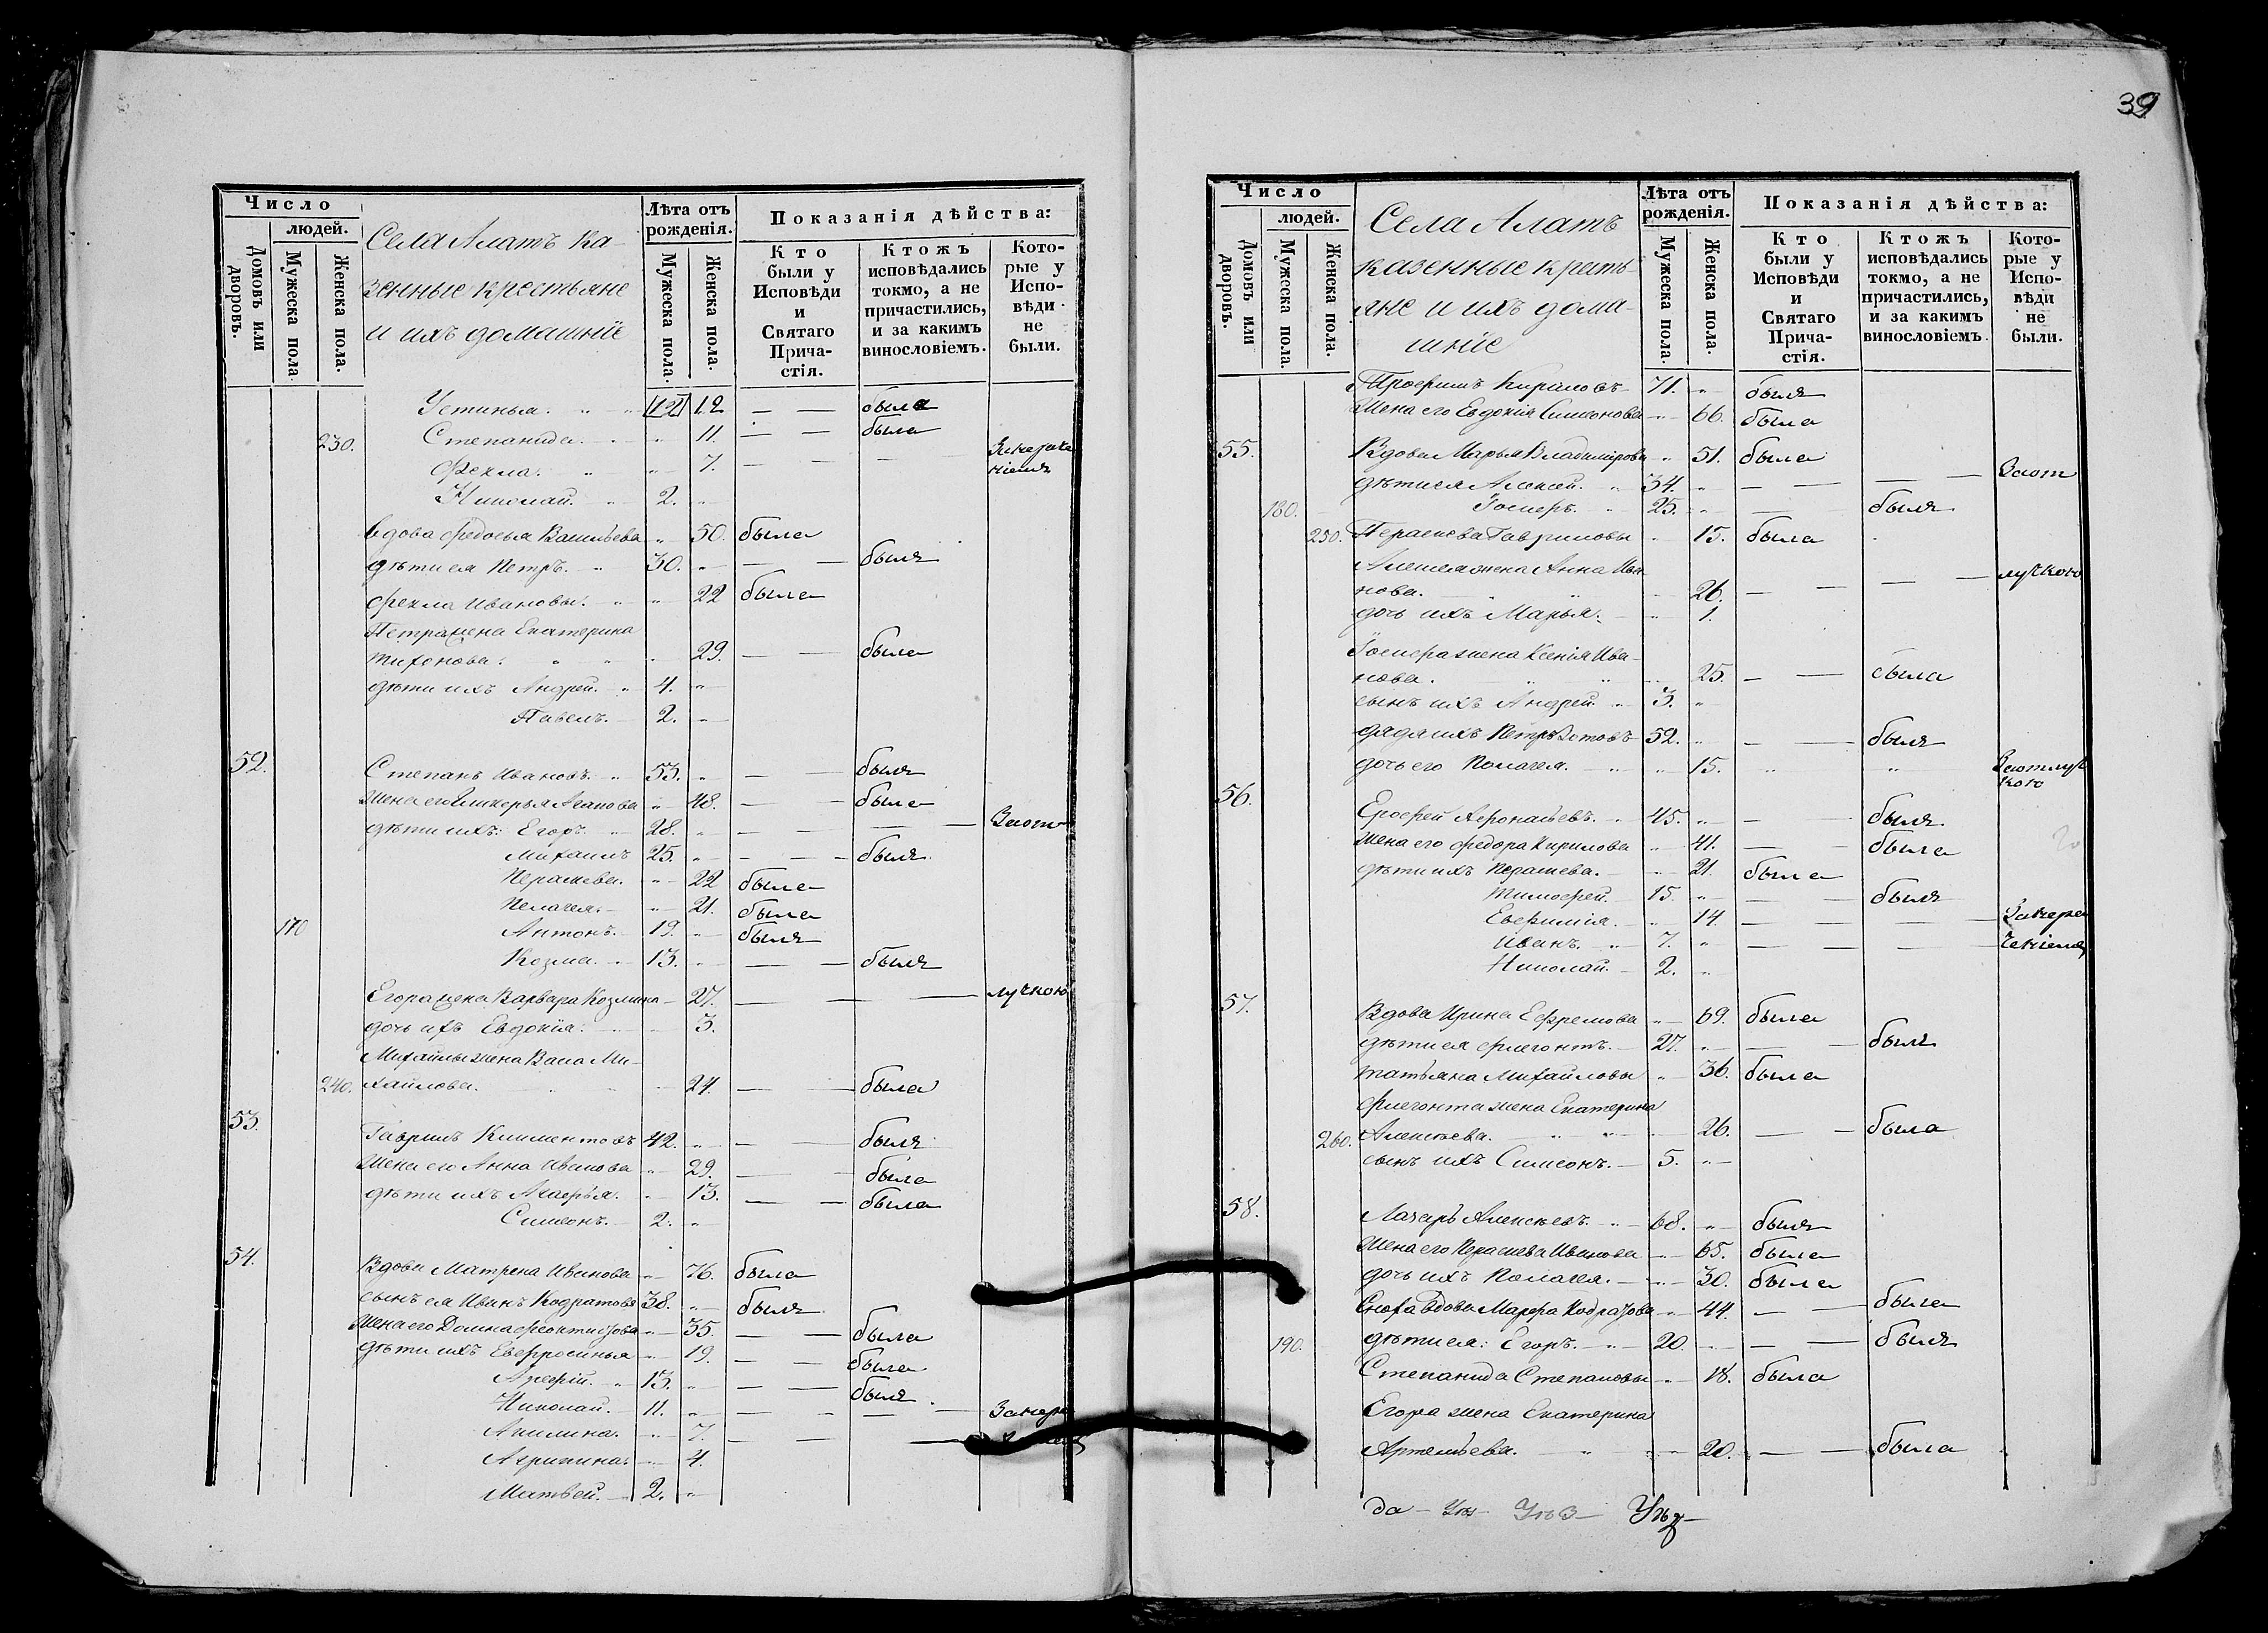 Число
людей.
Домовъ или дворовъ.
Мужеска пола.
Женска пола.
Села Алатъ ка-
зенные крестьяне
и ихъ домашніе
Лѣта отъ
рожденія.
Мужеска пола.
Женска пола.
Показанія дѣйства:
Кто
были у
Исповѣди
и
Святаго
Прича-
стія.
Ктожъ
исповѣдались
токмо, а не
причастились,
и за какимъ
винословіемъ.
Кото-
рые у
Испо-
вѣди
не
были.
Устинья. 12 12 — — была
230. Степанида. 11. — — была
Фекла. 7. — — —
Николай. 2.
вдова Федосья Васильева 50. была
дѣти ея Петръ. 30. — — былъ
Фекла Ивановы. 22 была
Петра жена Екатерина
Тихонова. 29. — — была
дѣти ихъ Андрей. 4.
Павелъ. 2.
52.
Степанъ Ивановъ. 53. — — былъ
жена его Гликерья Агапова 48. — — была
дѣти ихъ: Егоръ. 28. — — — Заот
Михаилъ 25. — — былъ
Параскева. 22 была
Пелагея. 21. была
170 Антонъ. 19. былъ
Козма. 13. — — былъ
Егора жена Варвара Козмина 27. — — — лучкою
дочь ихъ Евдокія. 3.
Михайлы жена Васа Ми-
240. хайлова. 24. — — была
53.
Гаврилъ Климентовъ 42. — — былъ
жена его Анна Иванова 29. — — была
дѣти ихъ Агафья. 13. — — была
Симеонъ. 2.
54.
Вдова Матрена Иванова 76. была
сынъ ея Иванъ Кодратовъ 38. былъ
жена его Домна 35. — — была
дѣти ихъ Евфросинья 19. — — была
Арефій. 13. — — былъ
Николай. 11. — — —
Акилина. 7. — —
Агрипина. 4.
Матвей. 2.
39
Число
людей.
Домовъ или дворовъ.
Мужеска пола.
Женска пола.
Села Алатъ
казенные кресть-
яне и ихъ дома-
шніе
Лѣта отъ
рожденія.
Мужеска пола.
Женска пола.
Показанія дѣйства:
Кто
были у
Исповѣди
и
Святаго
Прича-
стія.
Ктожъ
исповѣдались
токмо, а не
причастились,
и за какимъ
винословіемъ.
Кото-
рые у
Испо-
вѣди
не
были.
Трофимъ Кириловъ 71. былъ
жена его Евдокія Симеонова 66. была
55. Вдова Марья Владимірова 51. была
дѣти ея Алексей. 34. — — — Заот
180. Госифъ. 25. — былъ
250. Параскева Гавриловы 15. была
Алексея жена Анна Ива
нова. 26. — — — лучкою
дочь ихъ Марья. 1.
Госифа жена Ксенія Ива-
нова. 25. — — была
сынъ ихъ Андрей. 3.
дядя ихъ Петръ Зотовъ 52. — — былъ
дочь его Пелагея. 15. Заотлуч
кою
56.
Ерофей Афонасьевъ. 45. — былъ
жена его Федора Кирилова 41. — — была
дѣти ихъ Параскева. 21. была
Тимофей. 15. — — былъ
Евфимія. 14. — — —
Иванъ. 7. — — —
Николай. 2.
57.
Вдова Ирина Ефремова 69. была
дѣти ея Флегонтъ. 27. — — былъ
Татьяна Михайловы 36. была
Флегонта жена Екатерина
260. Алексѣева. 26. — — была
сынъ ихъ Симеонъ. 5.
58.
Лазарь Алексѣевъ. 68. былъ
жена его Параскева Иванова 65. была
дочь ихъ Пелагея. 30. была
Сноха вдова Марфа Кодратова 44. — — была
190. дѣти ея: Егоръ. 20. — — былъ
Степанида Степановы 18. была
Егора жена Екатерина
Артемьева. 20. — — была